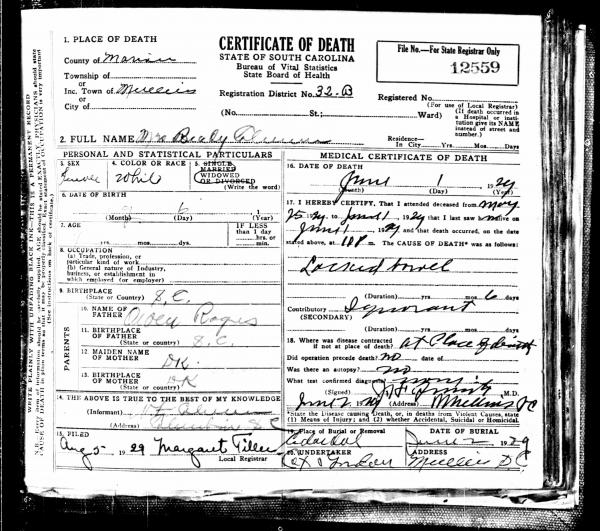 WRITE PLAINLY WITH UNFADING BLACK INK—THIS IS A PERMANENT RECORD
CERTIFICATE OF DEATH
STATE OF SOUTH CAROLINA
Bureau of Vital Statistics
State Board of Health
File No.—For State Registrar Only
12559
1. PLACE OF DEATH
County of Marion
Township of
or
Inc. Town of Mullins
or
City of
Registration District No. 32.B
Registered No.
(For use of Local Registrar)
(No. St.; Ward)
(If death occurred in a Hospital or institution give its NAME instead of street and number.)
2. FULL NAME Mrs
Residence—
In City Yrs. Mos. Days
PERSONAL AND STATISTICAL PARTICULARS
3. SEX
Female
4. COLOR OR RACE
White
5. SINGLE
MARRIED
WIDOWED
OR DIVORCED
(Write the word)
6. DATE OF BIRTH
(Month) (Day) (Year)
7. AGE
yrs. mos. days
IF LESS
than 1 day
hrs. or
min.
8. OCCUPATION
(a) Trade, profession, or
particular kind of work
(b) General nature of Industry,
business, or establishment in
which employed (or employer)
9. BIRTHPLACE
(State or Country) S.C.
PARENTS
10. NAME OF
FATHER Owen Rogers
11. BIRTHPLACE
OF FATHER
(State or country) S.C.
12. MAIDEN NAME
OF MOTHER DK.
13. BIRTHPLACE
OF MOTHER DK
(State or country)
14. THE ABOVE IS TRUE TO THE BEST OF MY KNOWLEDGE
(Informant)
(Address) S C
15. FILED
Aug 5 1929 Margaret Tiller
Local Registrar
MEDICAL CERTIFICATE OF DEATH
16. DATE OF DEATH
June 1 1929
(Month) (Day) (Year)
17. I HEREBY CERTIFY, That I attended deceased from May
25 1929, to June 1, 1929 that I last saw alive on
June 1, 1929 and that death occurred, on the date
stated above, at M. The CAUSE OF DEATH* was as follows:
Locked bowel
(Duration) yrs. mos. 6 days
Contributory Ignorant
(SECONDARY)
(Duration) yrs. mos. days
18. Where was disease contracted
if not at place of death? at Place of death
Did operation precede death? no date of
Was there an autopsy? no
What test confirmed diagnosis?
(Signed) M.D.
June 2 1929 (Address) Mullins S C
*State the Disease causing Death, or, in deaths from Violent Causes, state
(1) Means of Injury; and (2) whether Accidental, Suicidal or Homicidal.
19. Place of Burial or Removal
DATE OF BURIAL
June 2 1929
20. UNDERTAKER
ADDRESS
Mullins S C